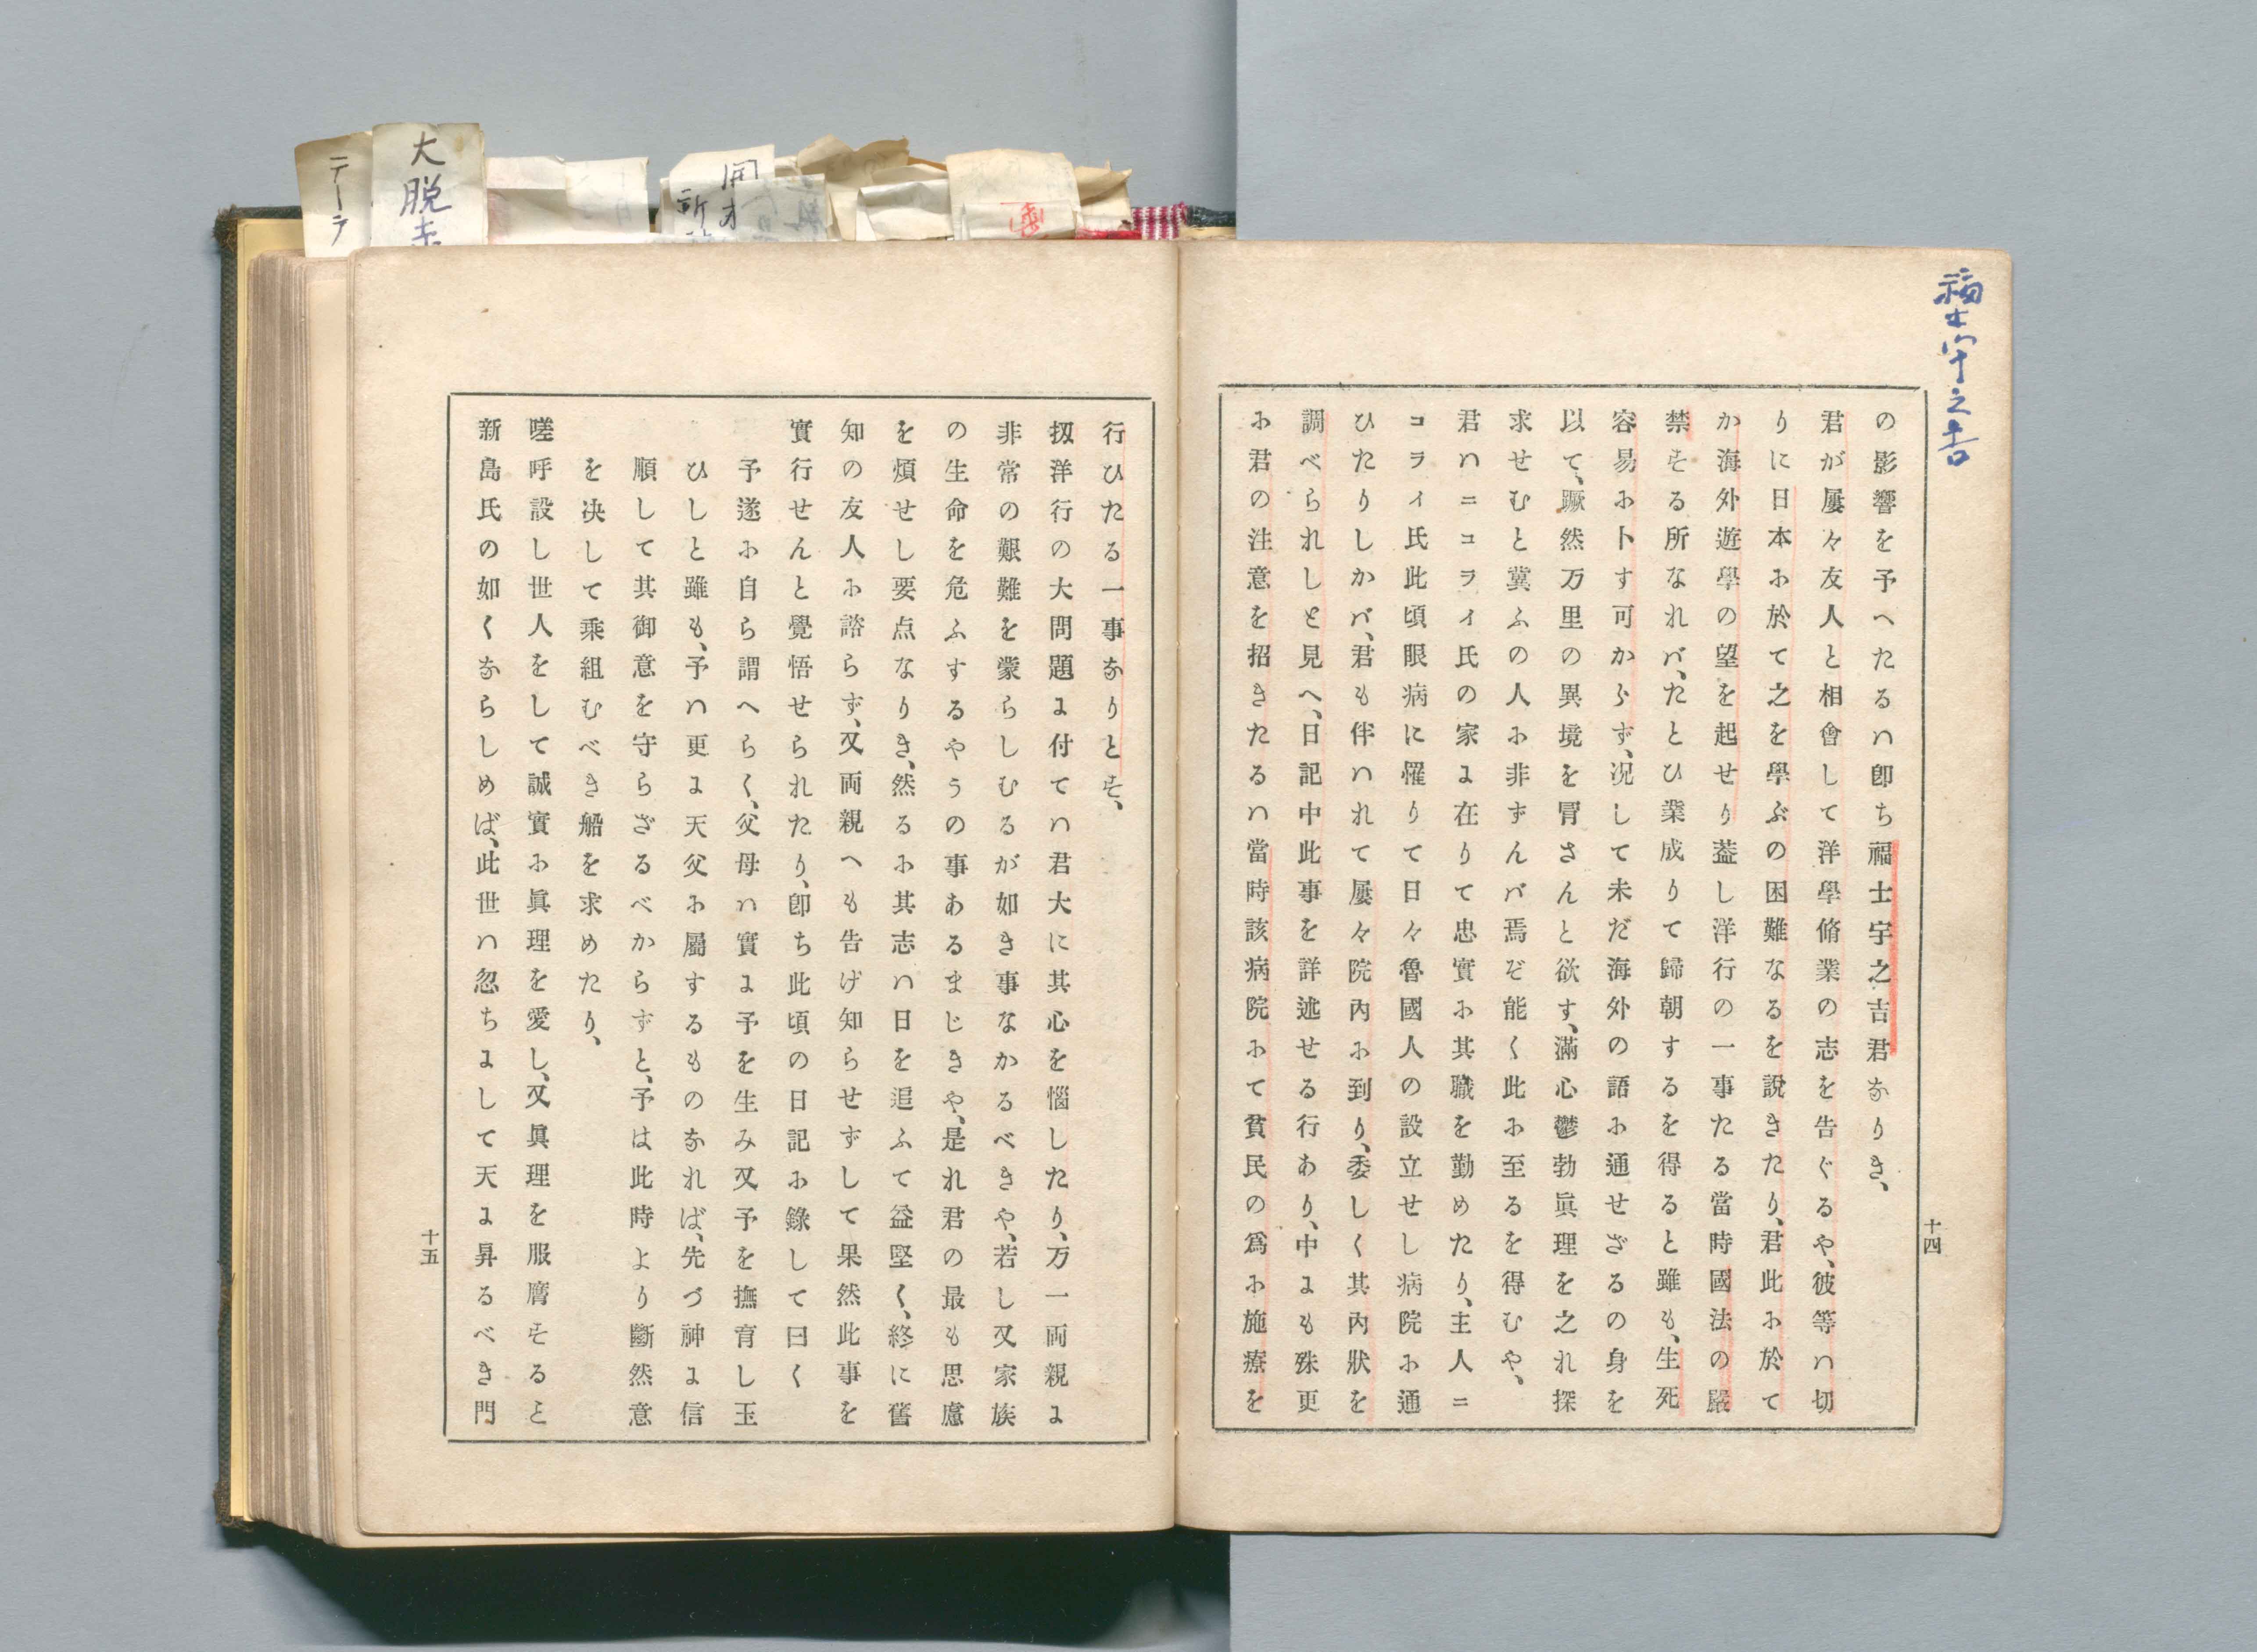 福士宇之吉
の影響を予へたるハ卽ち福士宇之吉君なりき、
君が屢々友人と相會して洋學脩業の志を告ぐるや、彼等ハ切
りに日本に於て之を學ぶの困難なるを說きたり、君此に於て
か海外遊學の望を起せり葢し洋行の一事たる當時國法の嚴
禁する所なれバ、たとひ業成りて歸朝するを得ると雖も、生死
容易に卜す可からず、況して未だ海外の語に通せざるの身を
以て、蹶然万里の異境を冐さんと欲す、滿心鬱勃眞理を之れ探
求せむと冀ふの人に非ずんバ焉ぞ能く此に至るを得むや、
君ハニコライ氏の家に在りて忠實に其職を勤めたり、主人ニ
コライ氏此頃眼病に罹りて日々魯國人の設立せし病院に通
ひたりしかバ、君も伴ハれて屢々院內に到り、委しく其內狀を
調べられしと見へ、日記中此事を詳述せる行あり、中にも殊更
に君の注意を招きたるハ當時該病院にて貧民の爲に施療を
十四
行ひたる一事なりとす、
扨洋行の大問題に付てハ君大に其心を惱したり、万一両親に
非常の艱難を蒙らしむるが如き事なかるべきや、若し又家族
の生命を危ふするやうの事あるまじきや、是れ君の最も思慮
を煩せし要点なりき、然るに其志ハ日を追ふて益堅く、終に舊
知の友人に諮らず、又両親へも告げ知らせずして果然此事を
實行せんと覺悟せられたり、卽ち此頃の日記に錄して曰く
予遂に自ら謂へらく、父母ハ實に予を生み又予を撫育し玉
ひしと雖も、予ハ更に天父に屬するものなれば、先づ神に信
順して其御意を守らざるべからずと、予は此時より斷然意
を决して乘組むべき船を求めたり、
嗟呼設し世人をして誠實に眞理を愛し、又眞理を服膺すると
新島氏の如くならしめば、此世ハ忽ちにして天に昇るべき門
十五
大脱
テーラ
開